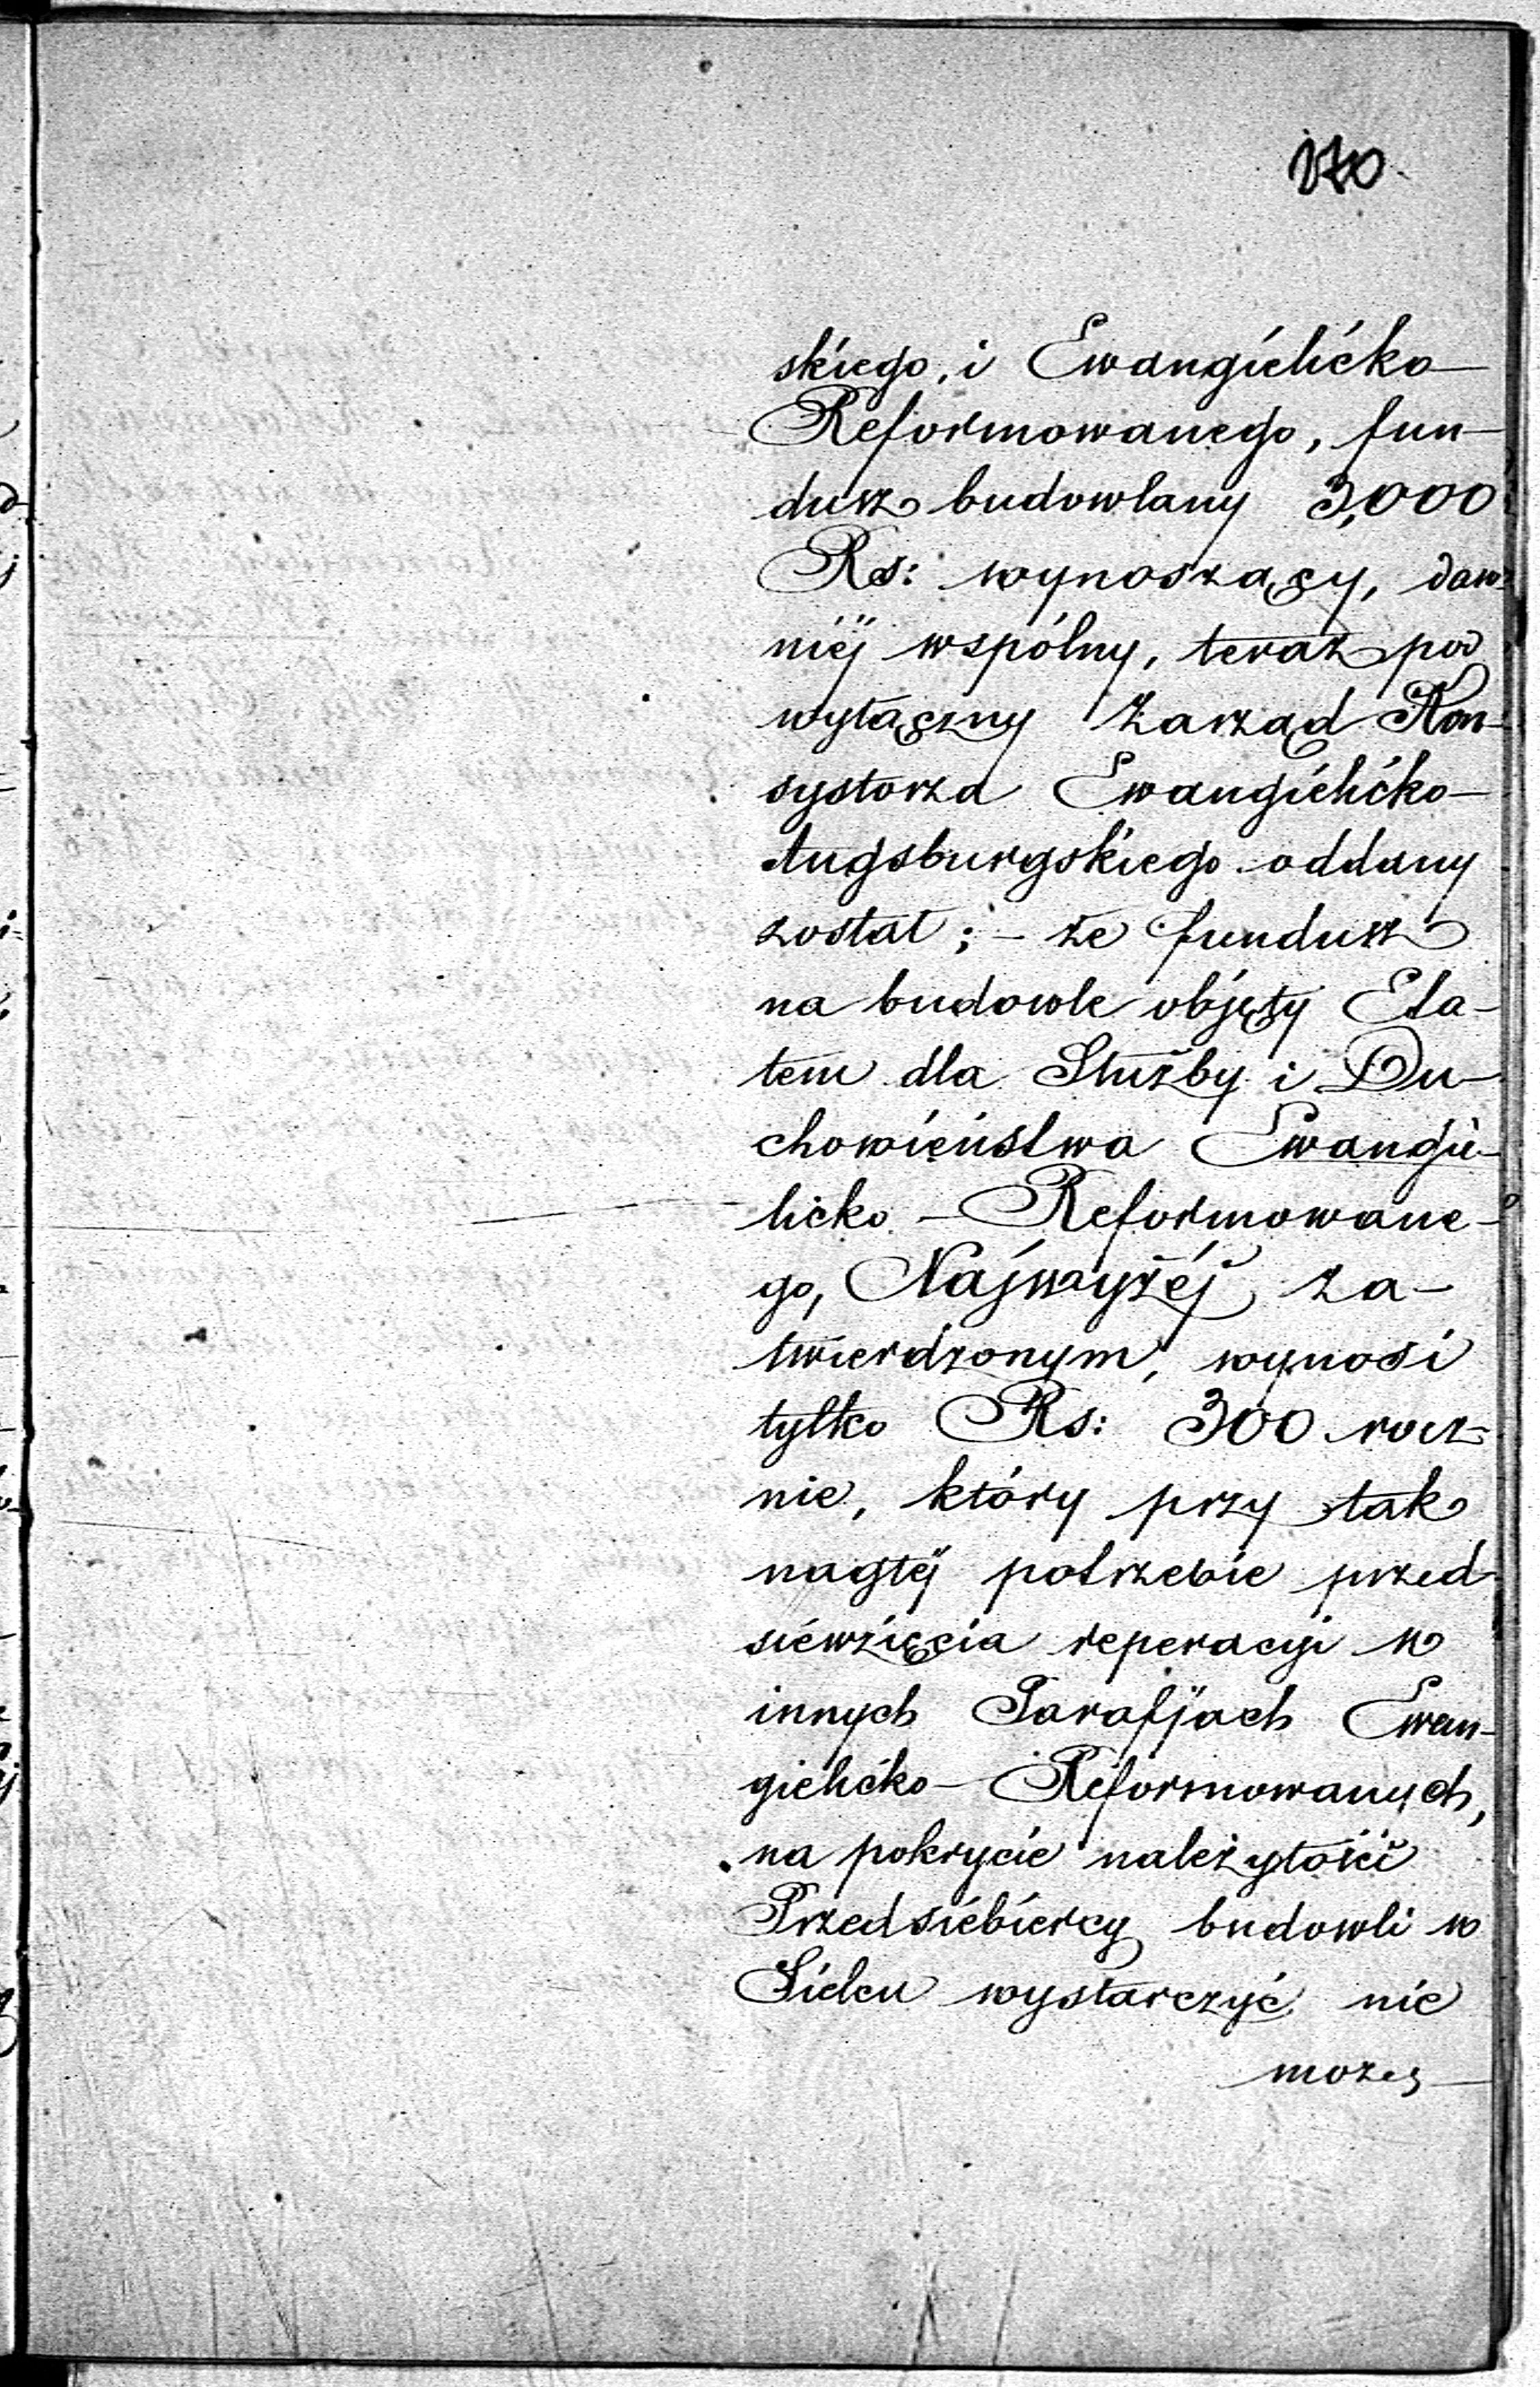 170
skiego, i Ewangielicko
Reformowanego, fun-
dusz budowlany 3,000
Rs: wynoszący, daw-
niéj wspólny, teraz pod
wyłączny Zarząd Kon-
systorza Ewangielicko-
Augsburgskiego oddany
został; – że fundusz
na budowle objęty Eta-
tem dla Służby i Du-
chowieństwa Ewangie-
licko – Reformowane-
go, Najwyżéj za-
twierdzonym, wynosi
tylko Rs: 300 rocz-
nie, który przy tak
nagłéj potrzebie przed-
siewzięcia reperacyi w
innych Parafjach Ewan-
gielicko – Reformowanych,
na pokrycie należytości
Przedsiebiercy budowli w
Sielcu wystarczyć nie
może,